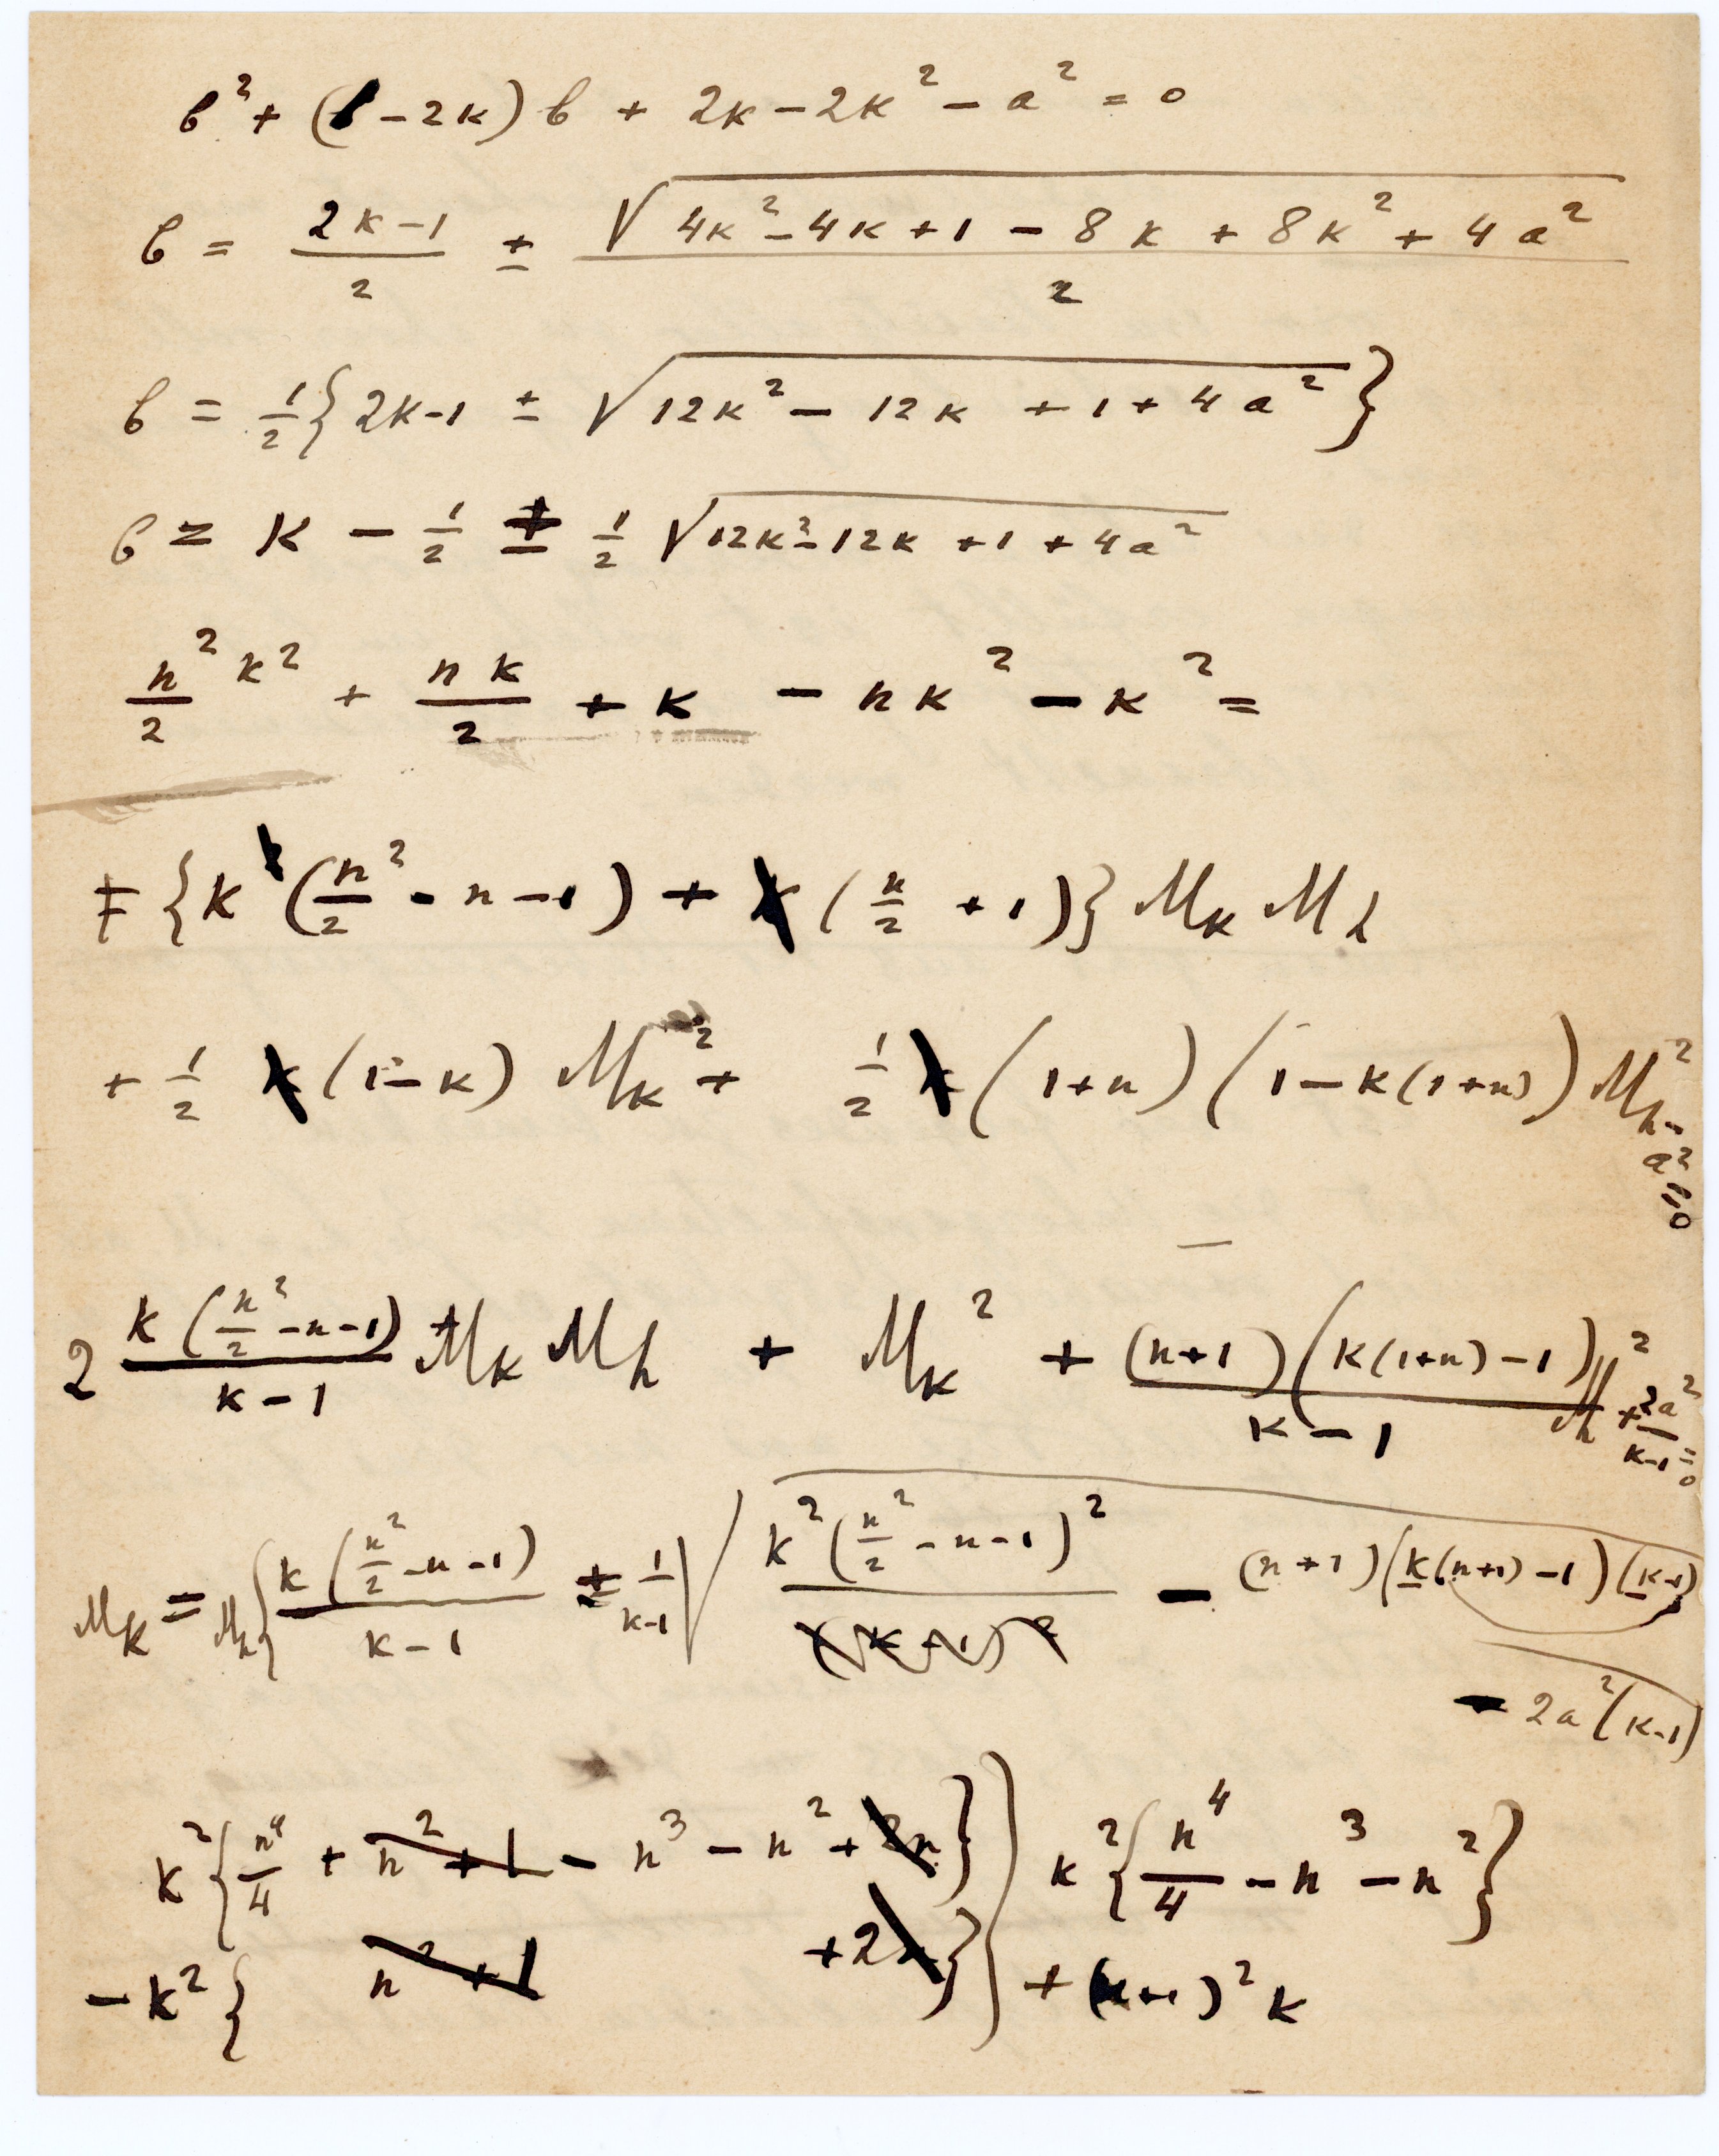 b² + (1 − 2k) b + 2k − 2k² − a² = 0
b = (2k − 1)/2 ± √(4k² − 4k + 1 − 8k + 8k² + 4a²)/2
b = 1/2 {2k − 1 ± √(12k² − 12k + 1 + 4a²)}
b = k − 1/2 ± 1/2 √(12k² − 12k + 1 + 4a²)
n²/2 k² + nk/2 + k − nk² − k² =
∓ {k (n²/2 − n − 1) + (n/2 + 1)} M_k M_h
+ 1/2 (1 − k) M_k² + 1/2 (1 + n) (1 − k(1 + n)) M_h² − a² = 0
2 k(n²/2 − n − 1)/(k − 1) M_k M_h + M_k² + (n + 1)(k(1 + n) − 1)/(k − 1) M_h² + 2a²/(k − 1) = 0
M_k = M_h {k(n²/2 − n − 1)/(k − 1) ± 1/(k − 1) √(k²(n²/2 − n − 1)² − (n + 1)(k(n + 1) − 1)(k − 1)
− 2a²(k − 1)
k² {n⁴/4 + n² + 1 − n³ − n² + 2n} } k² {n⁴/4 − n³ − n²}
− k² { n² + 1 + 2n} } + (n + 1)² k